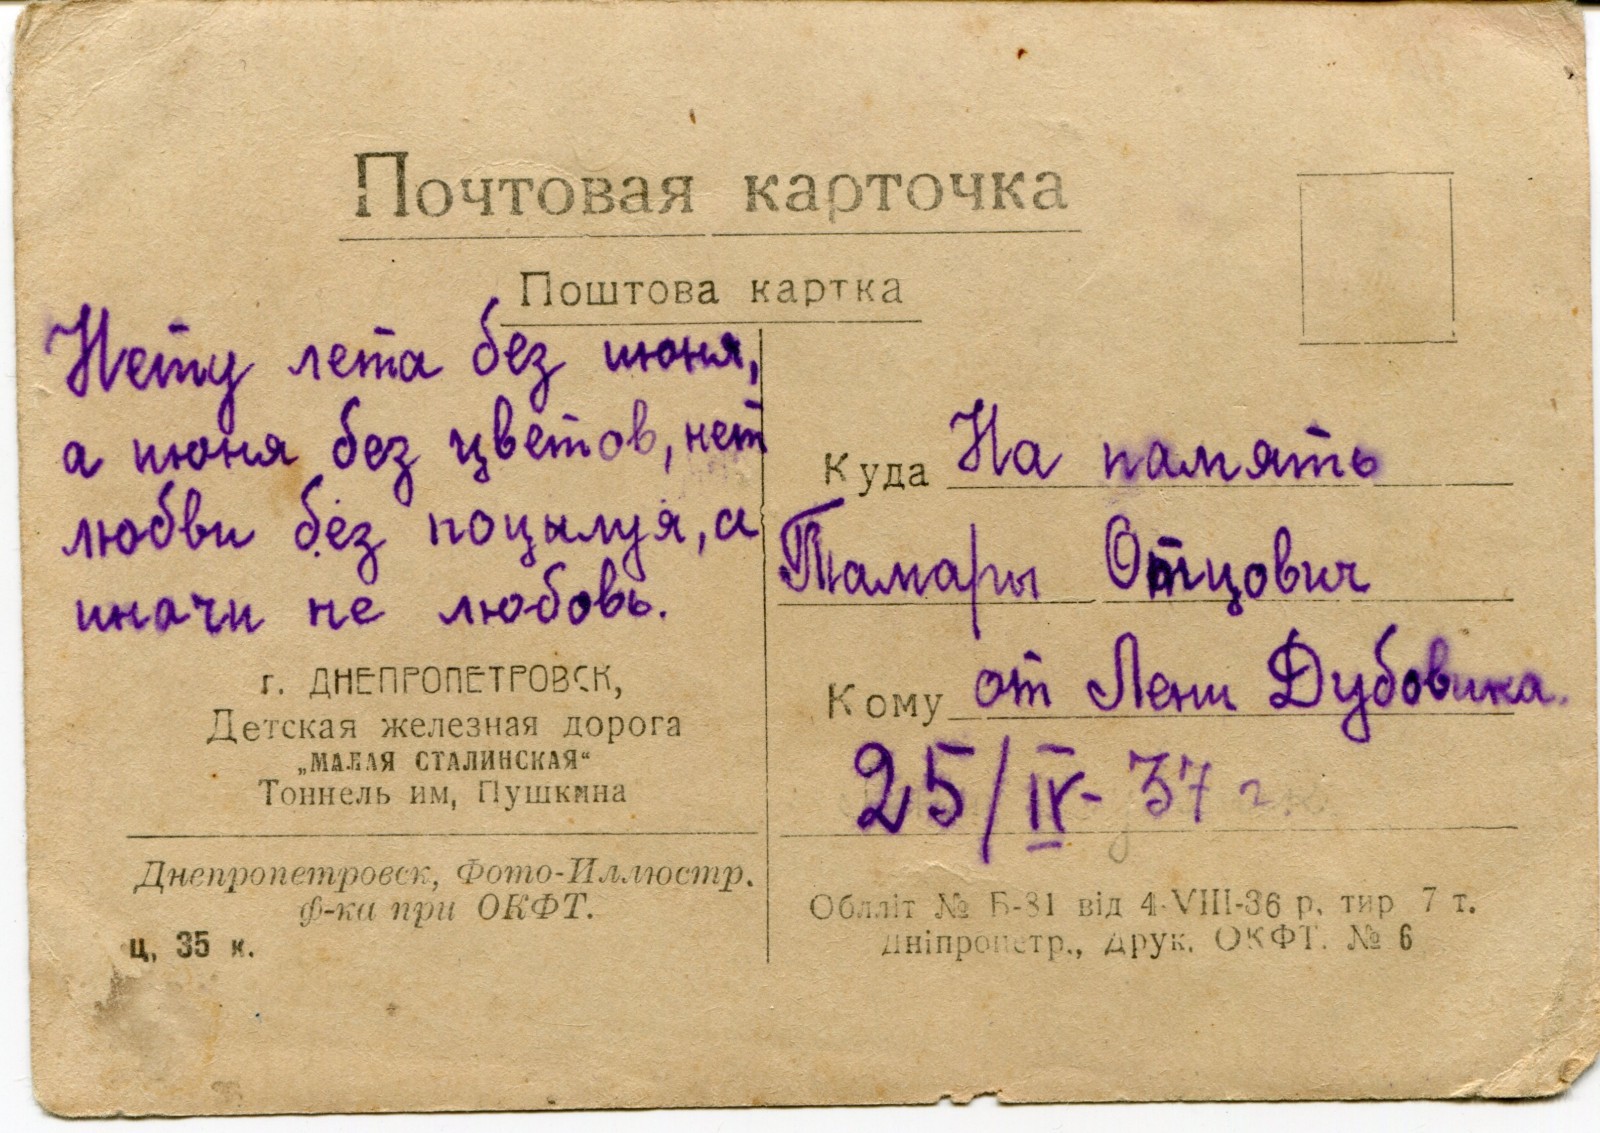 Почтовая карточка
Поштова картка
Нету лета без июня,
а июня без цветов, нет
любви без поцылуя, а
иначи не любовь.
г. ДНЕПРОПЕТРОВСК,
Детская железная дорога
„МАЛАЯ СТАЛИНСКАЯ“
Тоннель им, Пушкина
Днепропетровск, Фото-Иллюстр.
ф-ка при ОКФТ.
ц, 35 к.
Куда На память
Тамары Отцович
Кому от Лени Дубовика.
25/IV-37 г.
Облліт № Б-31 від 4-VIII-36 р, тир 7 т.
Дніпропетр., Друк. ОКФТ. № 6